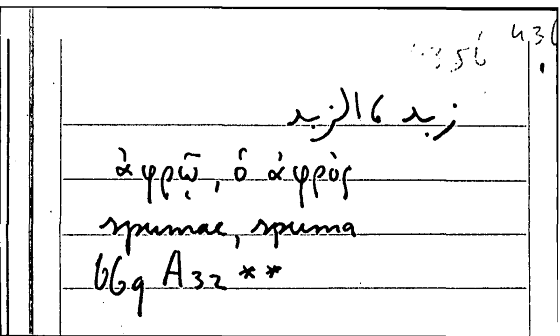 436
356
زبد ، الزبد
ἀφρῷ, ὁ ἀφρὸς
spumae, spuma
66q A32 **